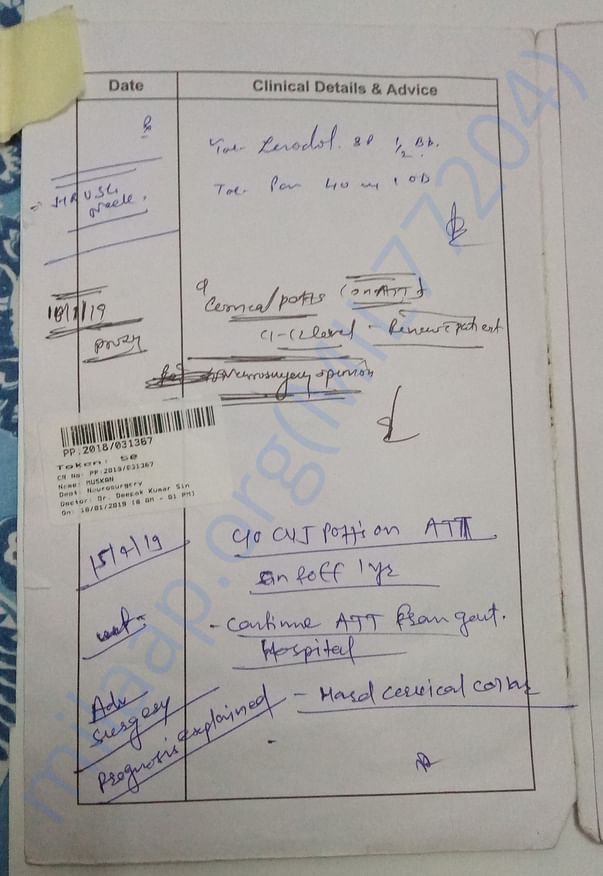 Date
Clinical Details & Advice
Tab. Zerodol. SP 1/2
Tab. Pan 40 1 OD
USG
Neck.
Cervical potts (on ATT)
C1-C2 level - patient
18/1/19
Neurosurgery opinion
PP.2018/031367
Token: 50
CR No: PP.2018/031367
Name: MUSKAN
Dept: Neurosurgery
Doctor: Dr. Deepak Kumar Sin
On: 18/01/2019 (8 AM - 01 PM)
15/4/19
C/O CVJ Pott's on ATT
on & off 1 yr
- Continue ATT from govt.
Hospital
Adv
Surgery
- Hard cervical collar
Prognosis explained
milaap.org(Mil:77204)